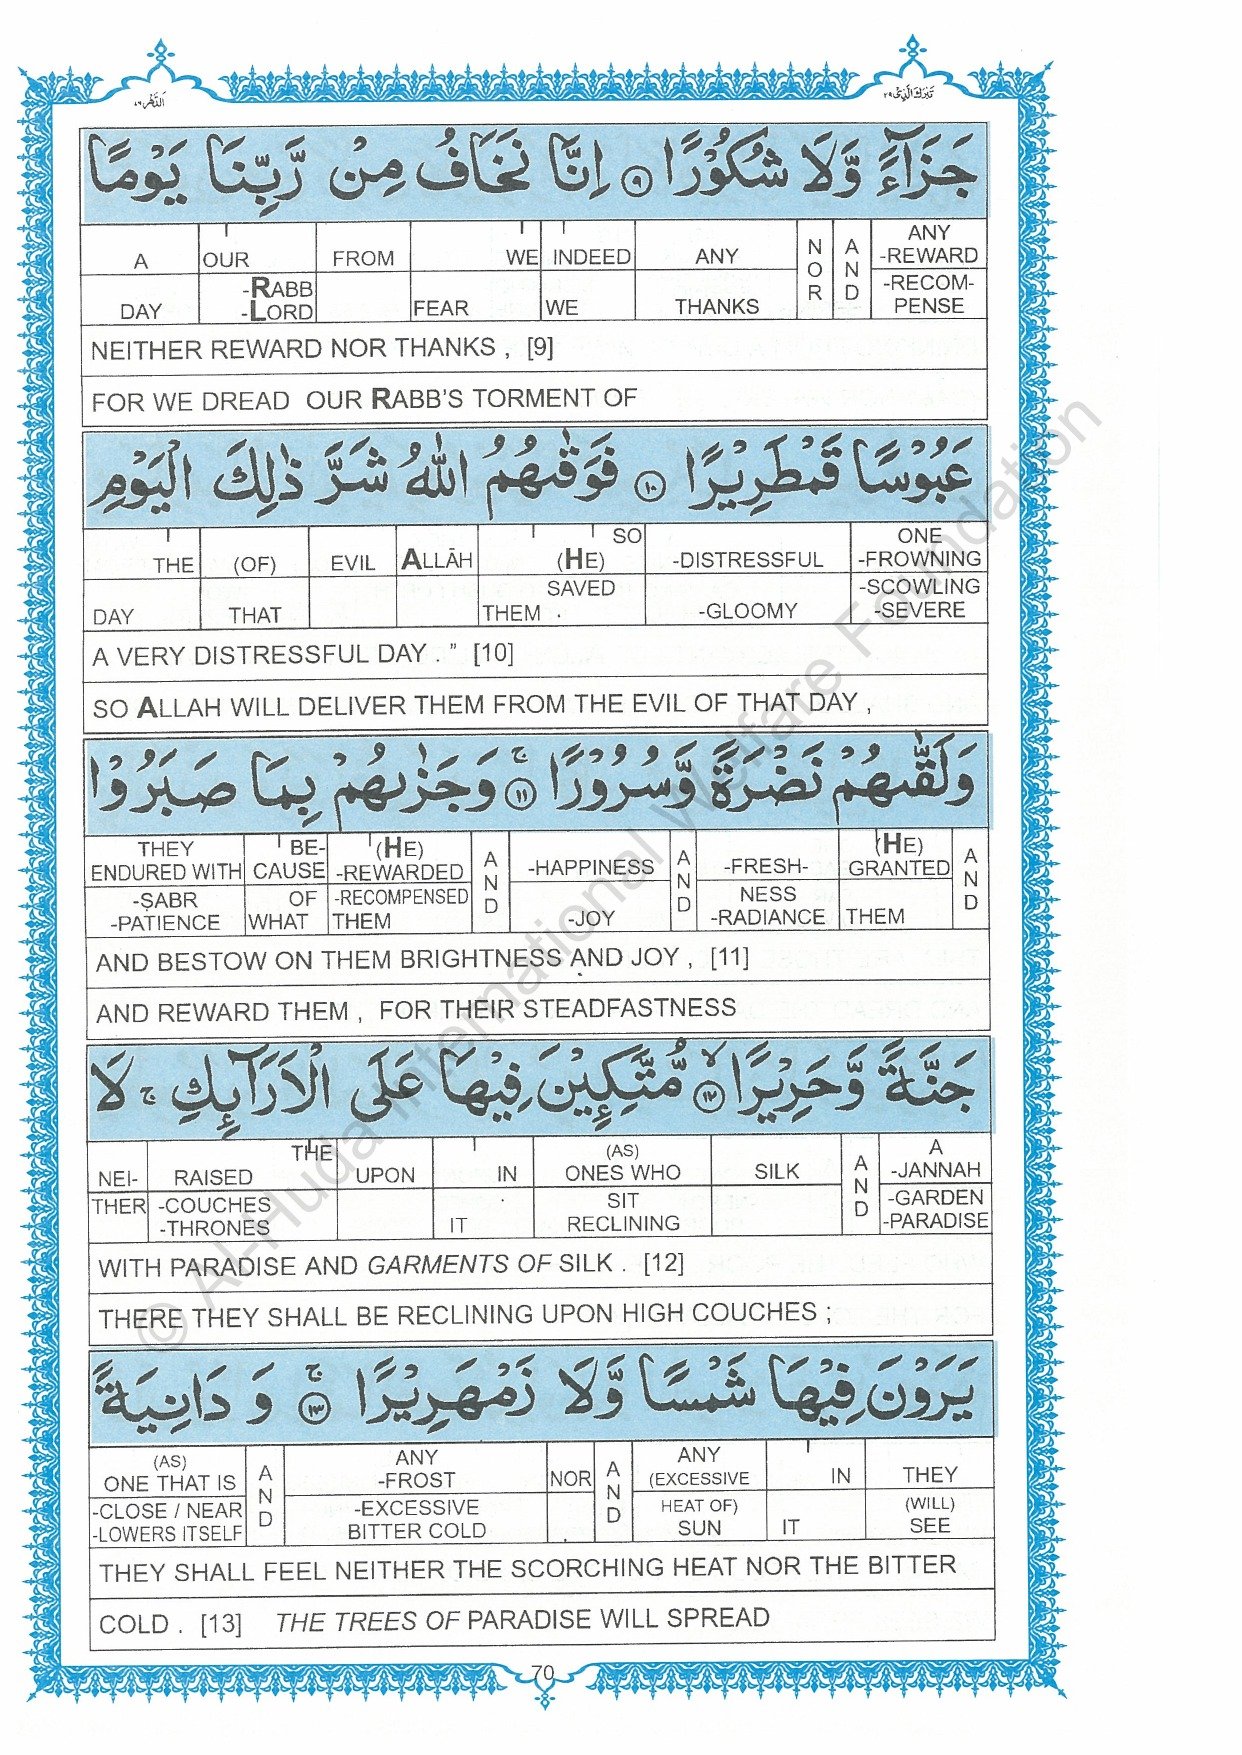 الدّهر ٧٦
تبٰرك الّذى ٢٩
جَزَآءً وَّلَا شُكُوْرًا ۹ اِنَّا نَخَافُ مِنْ رَّبِّنَا يَوْمًا
A OUR FROM WE INDEED ANY NOR AND ANY -REWARD
DAY -RABB -LORD FEAR WE THANKS -RECOM-PENSE
NEITHER REWARD NOR THANKS , [9]
FOR WE DREAD OUR RABB'S TORMENT OF
عَبُوْسًا قَمْطَرِيْرًا ۱۰ فَوَقٰىهُمُ اللّٰهُ شَرَّ ذٰلِكَ الْيَوْمِ
THE (OF) EVIL ALLĀH (HE) SO -DISTRESSFUL ONE -FROWNING
DAY THAT THEM SAVED -GLOOMY -SCOWLING -SEVERE
A VERY DISTRESSFUL DAY . ” [10]
SO ALLAH WILL DELIVER THEM FROM THE EVIL OF THAT DAY ,
وَلَقّٰىهُمْ نَضْرَةً وَّسُرُوْرًا ۱۱ ۚ وَجَزٰىهُمْ بِمَا صَبَرُوْا
THEY ENDURED WITH BE-CAUSE (HE) -REWARDED AND -HAPPINESS AND -FRESH- (HE) GRANTED AND
-ṢABR -PATIENCE OF WHAT -RECOMPENSED THEM -JOY NESS -RADIANCE THEM
AND BESTOW ON THEM BRIGHTNESS AND JOY , [11]
AND REWARD THEM , FOR THEIR STEADFASTNESS
جَنَّةً وَّحَرِيْرًا ۱۲ ۙ مُّتَّكِـِٕيْنَ فِيْهَا عَلَى الْاَرَآىِٕكِ ۚ لَا
NEI- RAISED THE UPON IN (AS) ONES WHO SILK AND A -JANNAH
THER -COUCHES -THRONES IT SIT RECLINING -GARDEN -PARADISE
WITH PARADISE AND GARMENTS OF SILK . [12]
THERE THEY SHALL BE RECLINING UPON HIGH COUCHES ;
يَرَوْنَ فِيْهَا شَمْسًا وَّلَا زَمْهَرِيْرًا ۱۳ ۚ وَ دَانِيَةً
(AS) ONE THAT IS AND ANY -FROST NOR AND ANY (EXCESSIVE IN THEY
-CLOSE / NEAR -LOWERS ITSELF -EXCESSIVE BITTER COLD HEAT OF) SUN IT (WILL) SEE
THEY SHALL FEEL NEITHER THE SCORCHING HEAT NOR THE BITTER
COLD . [13] THE TREES OF PARADISE WILL SPREAD
70
© Al-Huda International Welfare Foundation